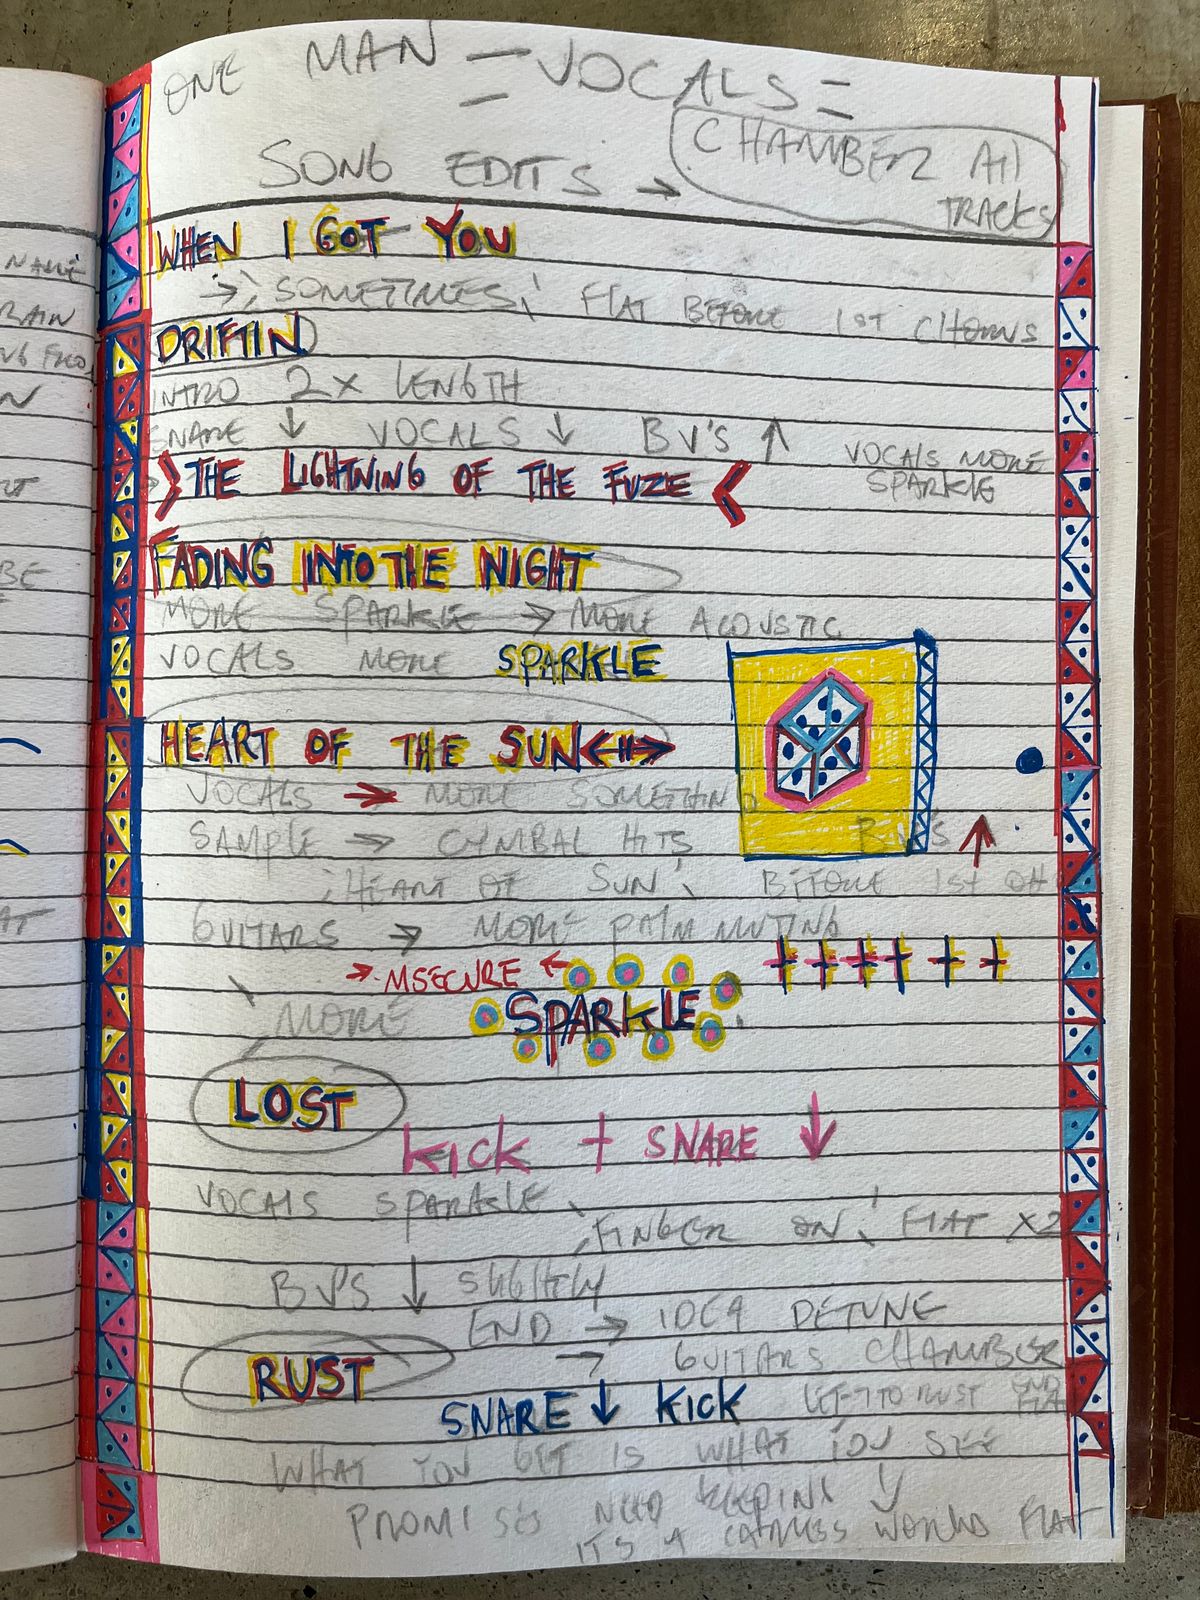 ONE MAN - VOCALS =
SONG EDITS → CHAMBER All
TRACKS
WHEN I GOT YOU
→ 'SOMETIMES' FLAT BEFORE 1ST CHORUS
DRIFTIN
INTRO 2x LENGTH
SNARE ↓ VOCALS ↓ BV'S ↑
VOCALS MORE
SPARKLE
THE LIGHTNING OF THE FUZE
FADING INTO THE NIGHT
MORE SPARKLE → MORE ACOUSTIC
VOCALS MORE SPARKLE
HEART OF THE SUN
VOCALS → MORE SOMETHING
SAMPLE → CYMBAL HITS BV'S ↑
'HEART OF SUN' BEFORE 1ST CH
GUITARS → MORE PALM MUTING
→ MSECURE ←
MORE SPARKLE
LOST
KICK + SNARE ↓
VOCALS SPARKLE
'FINGER ON' FLAT X2
BV'S ↓ SLIGHTLY
END → IDEA DETUNE
→ GUITARS CHAMBER
RUST
SNARE ↓ KICK LEFT TO RUST END
WHAT YOU GET IS WHAT YOU SEE
PROMISES NEED KEEPING
IT'S A WORLD FLAT
NAME